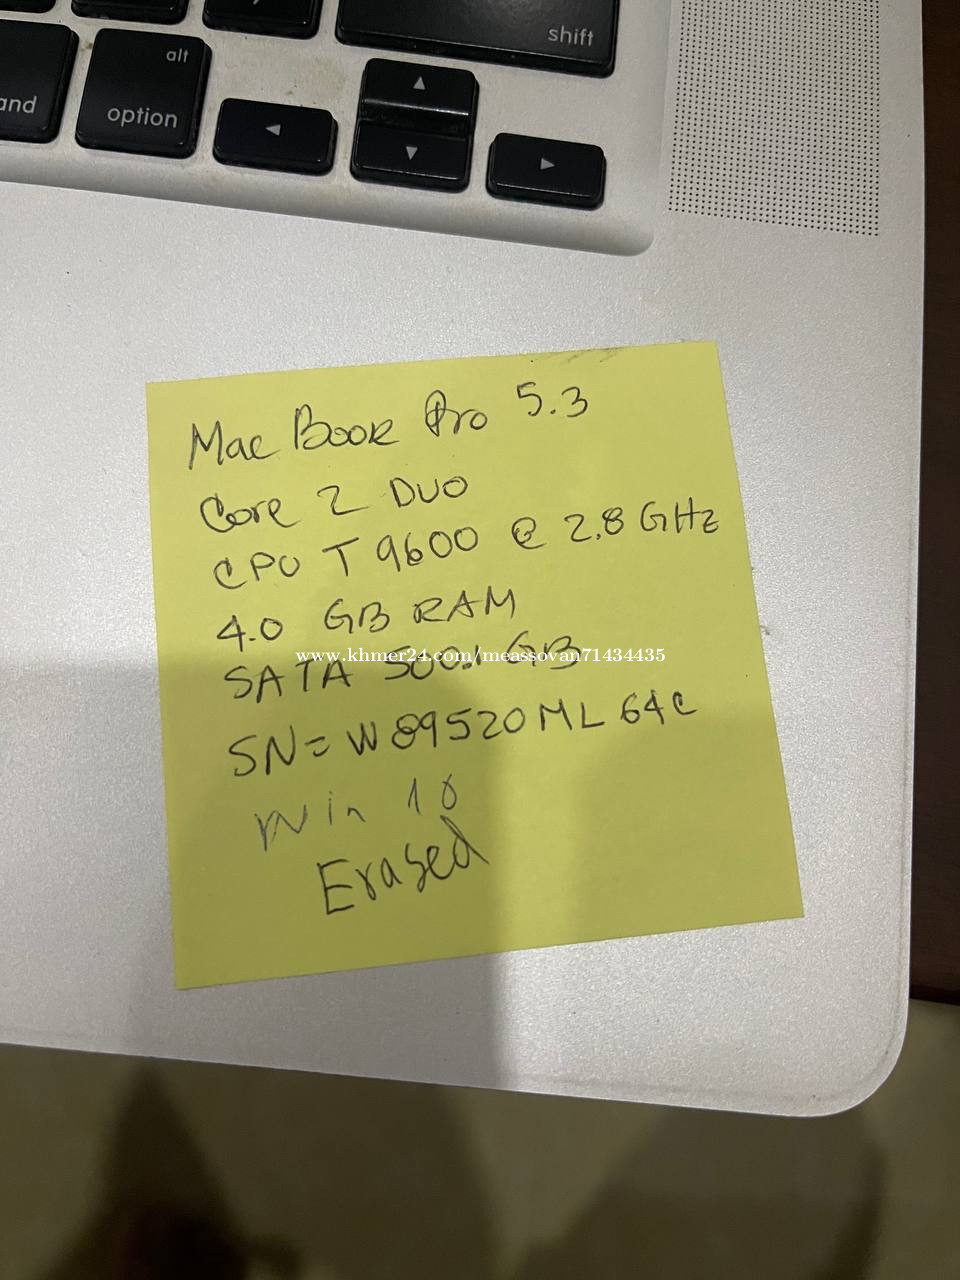 shift
alt
and
option
Mac Book Pro 5.3
Core 2 DUO
CPU T9600 @ 2.8 GHz
4.0 GB RAM
SATA 500.1 GB
www.khmer24.com/meassovan71434435
SN = W89520ML64C
Win 10
Erased